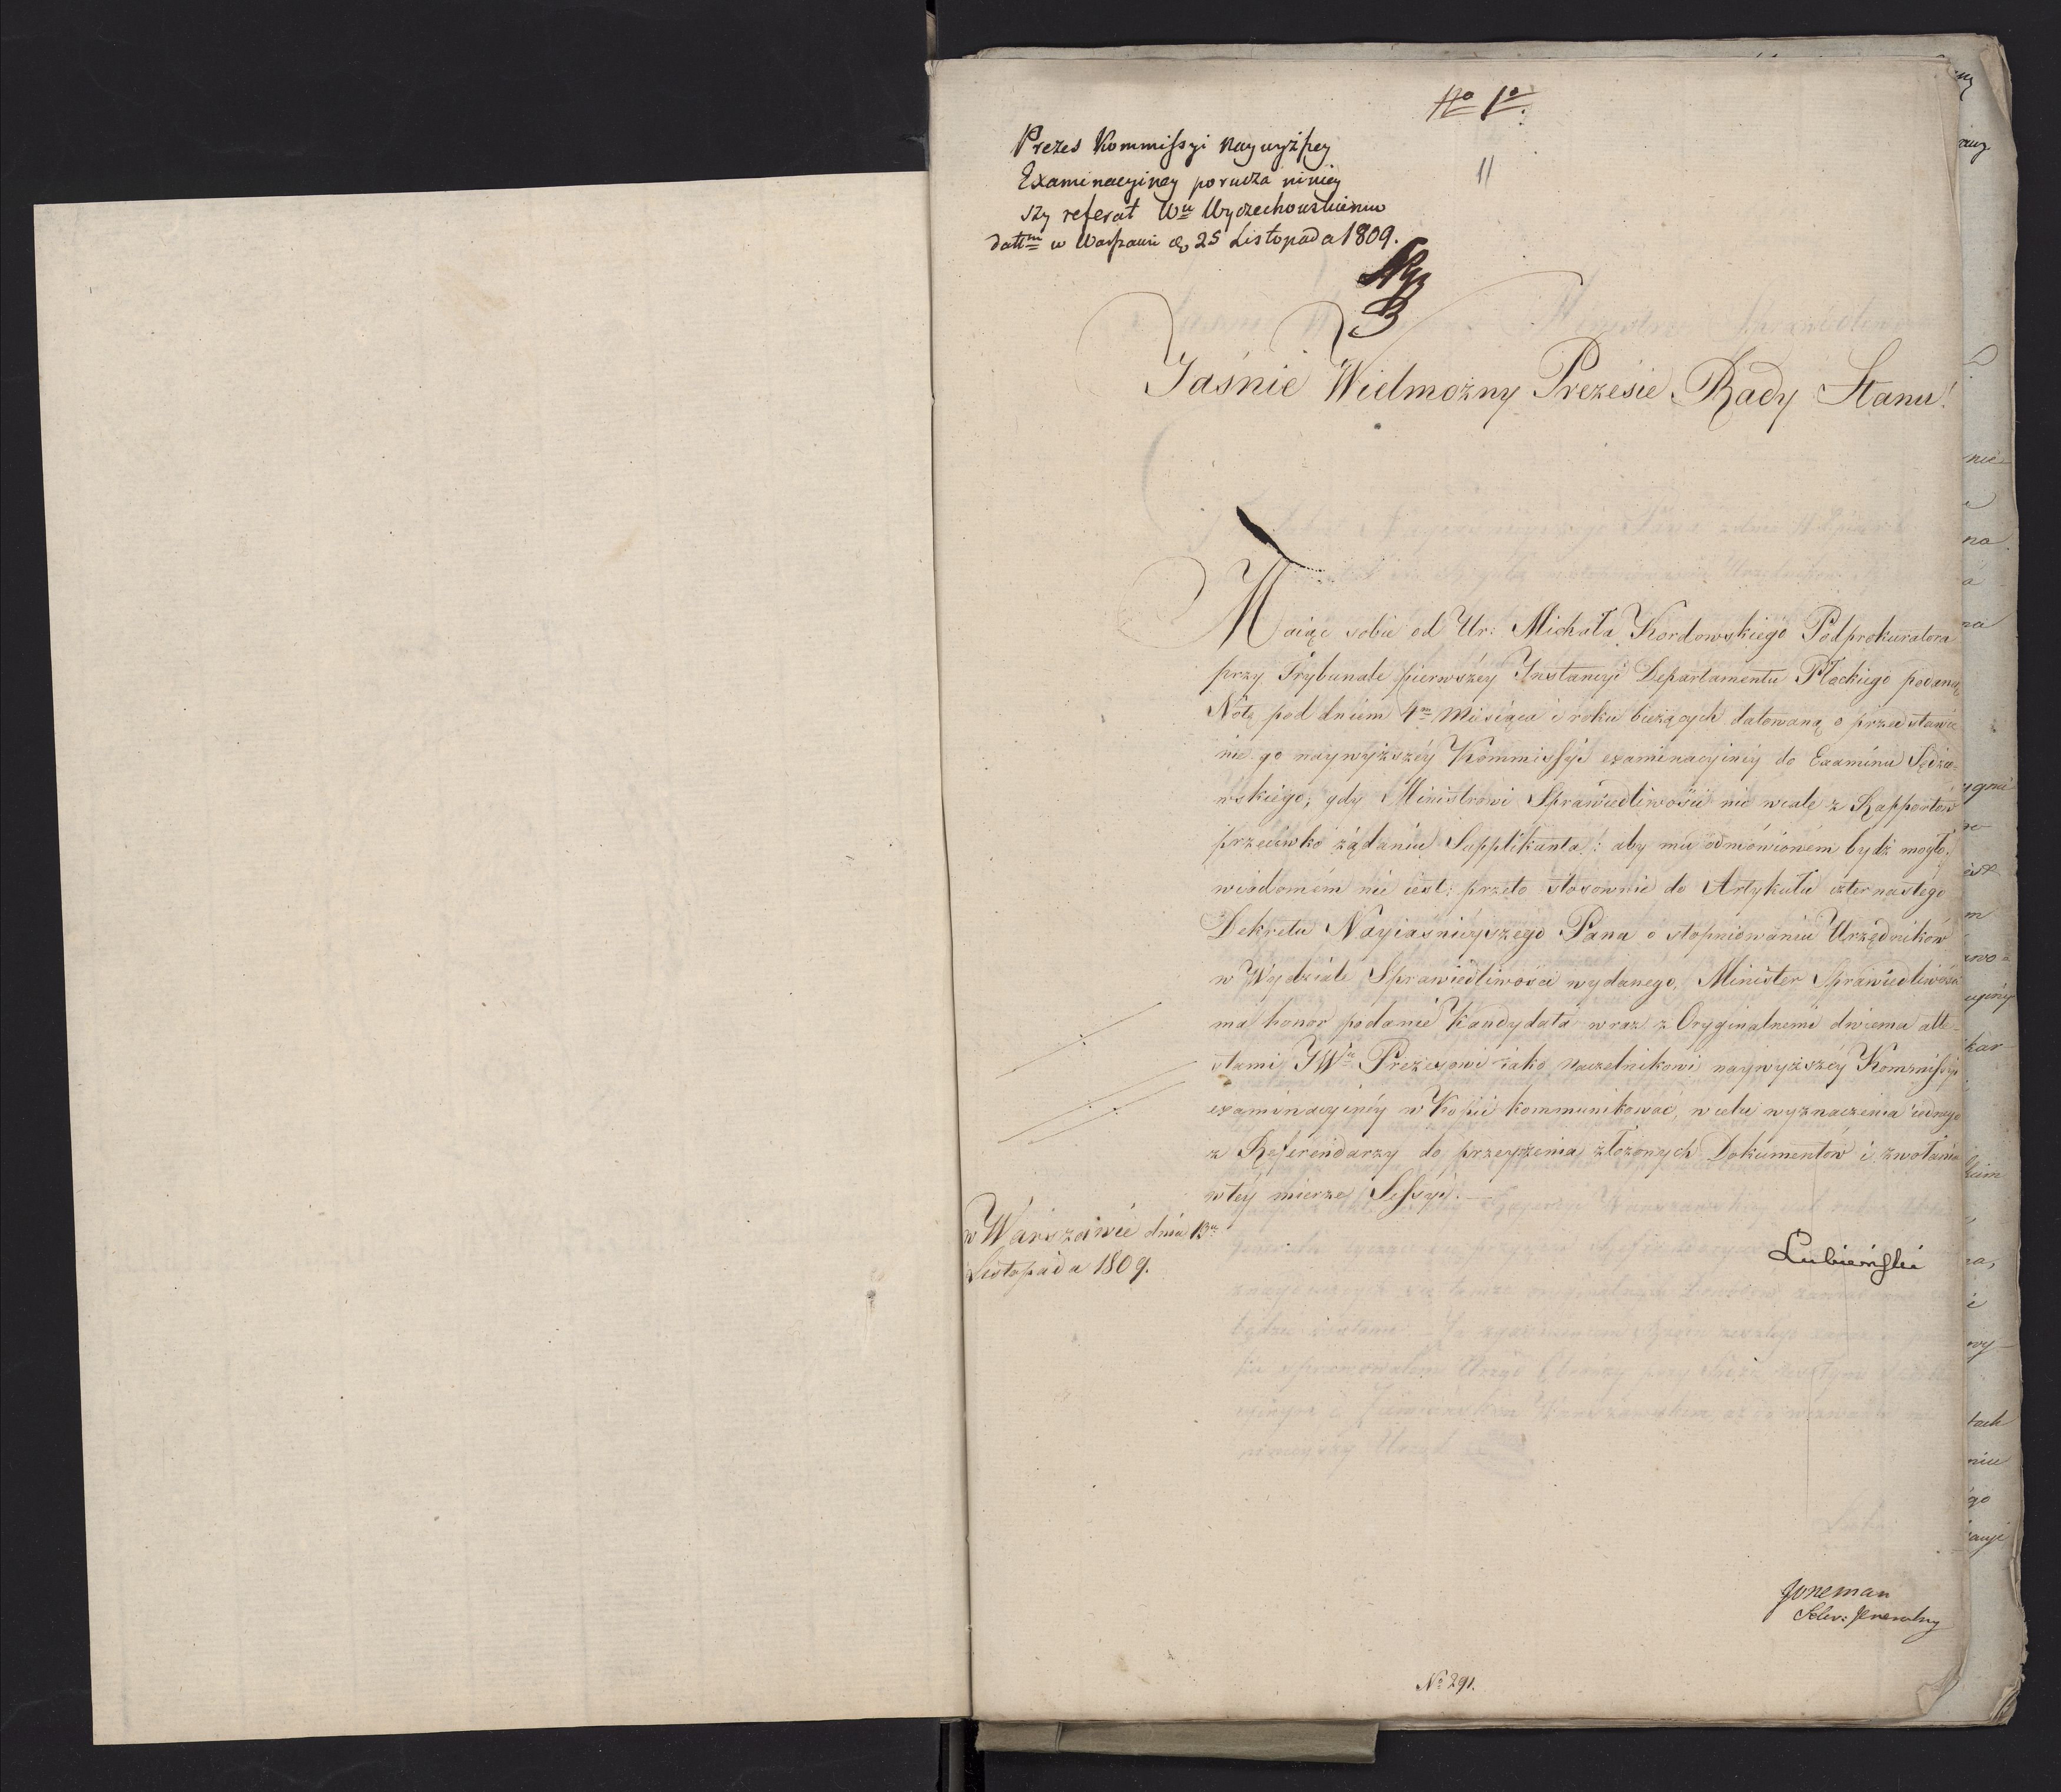 No 1o.
11
Prezes Kommissyi naywyższey
Examinacyiney porucza niniey
szy referat Wu Wyczechowskiemu
dattm w Warszawie do 25 Listopada 1809.
Jaśnie Wielmożny Prezesie Rady Stanu!
Maiąc sobie od Ur: Michała Kordowskiego Podprokuratora
przy Trybunale pierwszey Instancyi Departamentu Płockiego podaną
Notę pod dniem 4m Miesiąca i roku bieżących datowaną o przedstawie
nie go naywyższéy Kommissyi examinacyinéy do Examinu Sędzio-
wskiego; gdy Ministrowi Sprawiedliwości nic wcale z Rapportów
przeciwko żądaniu Supplikanta: aby mu odmówionem bydź mogło,
wiadomém nie iest: przeto stosownie do Artykułu czternastego
Dekretu Nayiaśnieyszego Pana o stopniowaniu Urzędników
w Wydziale Sprawiedliwości wydanego, Minister Sprawiedliwości
ma honor podanie Kandydata wraz z Oryginalnemi dwiema atte-
stami JWu Prezesowi iako Naczelnikowi naywyższéy Kommissyi
examinacyinéy w Kopii kommunikować, w celu wyznaczenia iednego
z Referendarzy do przeyrzenia złożonych Dokumentów i zwołania
w téy mierze Sessyi.
w Warszawie dnia 13u
Listopada 1809.
Lubieński
Joneman
Sekr: Jeneralny
No 291.